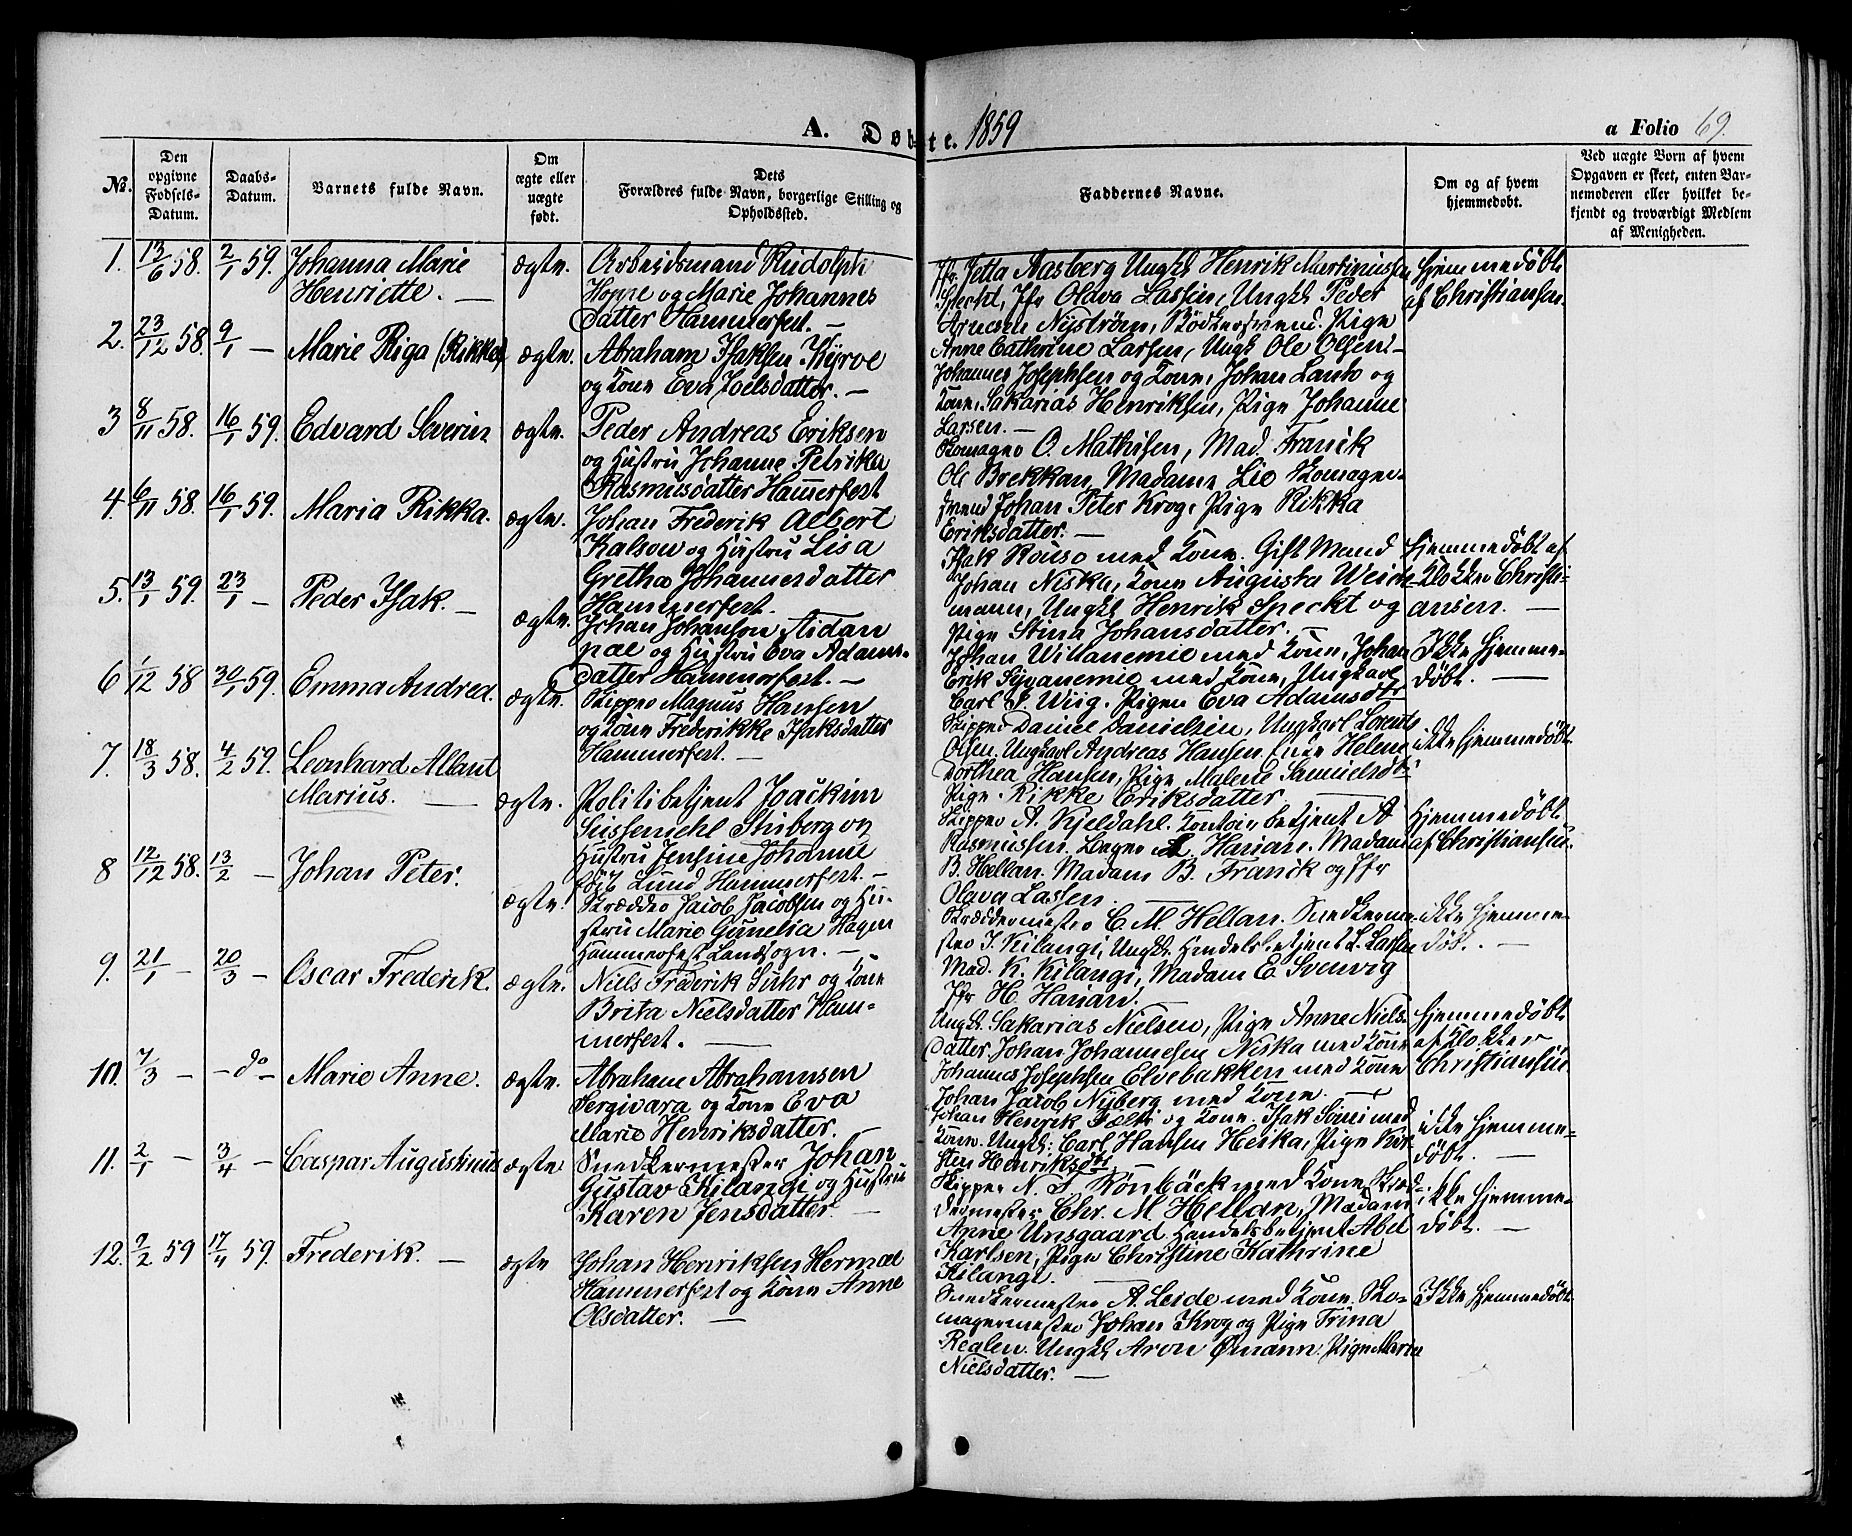 A. Døbte. 1859
a Folio 69.
No.
Den opgivne Fødsels-Datum.
Daabs-Datum.
Barnets fulde Navn.
Om ægte eller uægte født.
Dets Forældres fulde Navn, borgerlige Stilling og Opholdssted.
Faddernes Navne.
Om og af hvem hjemmedøbt.
Ved uægte Born af hvem Opgaven er skeet, enten Barnemoderen eller hvilket bekjendt og troværdigt Medlem af Menigheden.
1. 13/6 58. 2/1 59. Johanna Marie
Henriette. —
ægte.
Arbeidsmand Rudolph
Hoppe og Marie Johannes
datter Hammerfest. —
Jfr. Jetta Aasberg Ungk. Henrik Martinussen
Specht, Jfr Olava Lassen, Ungk. Peder
Arnesen Nystrøm, Bödkersvend. Pige
Hjemmedøbt
af Christiansen.
2. 23/12 58. 9/1 — Marie Riga (Rikke)
ægte.
Abraham Isaksen Kyrve
og Kone Eva Joelsdatter. —
Anne Cathrine Larsen, Ungk Ole Olsen. —
Johannes Josephsen og Kone, Johan Lanto og
Kone, Sakarias Henriksen, Pige Johanne
Larsen. —
3 8/11 58. 16/1 59. Edvard Severin
ægte.
Peder Andreas Eriksen
og Hustru Johanne Petrika
Rasmusdatter Hammerfest
Skomager O. Mathisen, Mad. Franck
Ole Brekkan, Madame Lie Skomager-
svend Johan Peter Krog, Pige Rikka
Eriksdatter. —
4. 6/11 58. 16/1 59. Maria Rikka.
ægte.
Johan Frederik Albert
Kalson og Hustru Lisa
Gretha Johannesdatter
Hammerfest.
Isak Rouso med Kone. Gift Mand
Johan Niska, Kone Augusta Weid-
mann, Ungk. Henrik Speckt og
Pige Stina Johansdatter. —
Hjemmedøbt af
Klokker Christi-
ansen. —
5. 13/1 59. 23/1 — Peder Isak. —
ægte.
Johan Johanson Aidan
pae og Hustru Eva Adams-
datter Hammerfest. —
Johan Willanemie med Kone, Johan
Erik Syvanemie med Kone, Ungkarl
Carl P. Wiig. Pigen Eva Adamsdtr
Ikke hjemme-
døbt. —
6 1/12 58 30/1 59. Emma Andrea.
ægte.
Skipper Magnus Hansen
og Kone Frederikke Isaksdatter
Hammerfest. —
Skipper Daniel Danielsen, Ungkarl Lorents
Olsen. Ungkarl Andreas Hansen, Helene
Dorthea Hansen, Pige Malene Samuelsdtr
Pige Rikke Eriksdatter —
ikke hjemmedøbt.
7. 18/3 58. 4/2 59. Leonhard Allant
Marius. —
ægte.
Politibetjent Joackim
Stiberg og
Hustru Jensine Johanne
Lund Hammerfest. —
Skipper A. Kjeldahl. Kontoirbetjent A
Rasmussen. Læge Harian. Madam
B. Hellan. Madam B. Franck og Jfr
Olava Lassen. —
Hjemmedøbt
af Christiansen.
8 12/12 58. 13/2 — Johan Peter.
ægte.
Skrædder Jacob Jacobsen og Hu-
stru Marie Gunelia Hagen
Hammerfest Landsogn. —
Skræddermester C. M. Hellan. Snedkerme-
ster J. Kilangi, Ungk. Handelsbetjent L. Lassen
Mad. K. Kilangi, Madam E Svenvig
Jfr H. Harian.
ikke hjemme-
døbt. —
9. 21/1 — 20/3 — Oscar Frederik.
ægte.
Niels Frederik Suhr og Kone
Brita Nielsdatter Ham-
merfest. —
Ungk. Sakarias Nielsen, Pige Anne Niels-
datter. Johan Johannesen Niska med Kone
Johannes Josephsen Elvebakken med Kone
Johan Jacob Nyberg med Kone. —
Hjemmedøbt
af Klokker
Christiansen.
10. 7/3 — — do — Marie Anne.
ægte.
Abraham Abrahamsen
Sergivara og Kone Eva
Marie Henriksdatter.
Johan Henrik Fælti og Kone. Isak Somi med
Kone. Ungk: Carl Hansen Heika, Pige Kir-
sten Henriksdtr —
ikke hjemme-
døbt. —
11. 2/1 — 3/4 — Caspar Augustinus
ægte.
Snedkermester Johan
Gustav Kilangi og Hustru
Karen Jensdatter. —
Skipper N. S Rönbäck med Kone, Skræd-
dermester Chr. M. Hellan, Madam
Anne Unsgaard. Handelsbetjent Abel
Karlsen, Pige Christine Kathrine
Kilangi. —
ikke hjemme-
døbt. —
12. 7/2 59 17/4 59. Frederik. —
ægte
Johan Henriksen Hermal
Hammerfest og Kone Anne
Olsdatter. —
Snedkermester A. Leide med Kone, Sko-
magermester Johan Krog og Pige Trina
Realen. Ungk. Aron Ømann. Pige Maria
Nielsdatter. —
Ikke hjemmedøbt.